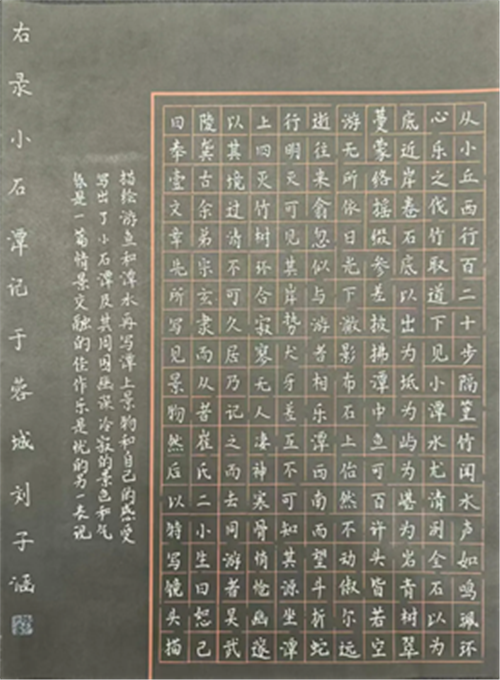 从小丘西行百二十步隔篁竹闻水声如鸣珮环
心乐之伐竹取道下见小潭水尤清冽全石以为
底近岸卷石底以出为坻为屿为嵁为岩青树翠
蔓蒙络摇缀参差披拂潭中鱼可百许头皆若空
游无所依日光下澈影布石上佁然不动俶尔远
逝往来翕忽似与游者相乐潭西南而望斗折蛇
行明灭可见其岸势犬牙差互不可知其源坐潭
上四灭竹树环合寂寥无人凄神寒骨悄怆幽邃
以其境过清不可久居乃记之而去同游者吴武
陵龚古余弟宗玄隶而从者崔氏二小生曰恕己
曰奉壹文章先所写见景物然后以特写镜头描
描绘游鱼和潭水再写潭上景物和自己的感受
写出了小石潭及其周围幽深冷寂的景色和气
氛是一篇情景交融的佳作乐是忧的另一表现
右录小石潭记于蓉城刘子涵